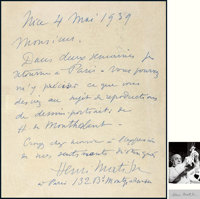 Nice 4 Mai 1939
Monsieur,
Dans deux semaines je
retourne à Paris. Vous pourrez
m'y préciser ce que vous
désirez au sujet de reproductions
de dessins portraits de
H de Montherlant.
Croyez cher monsieur à l'expression
de mes sentiments distingués
Henri Matisse
à Paris 132 Bd Montparnasse